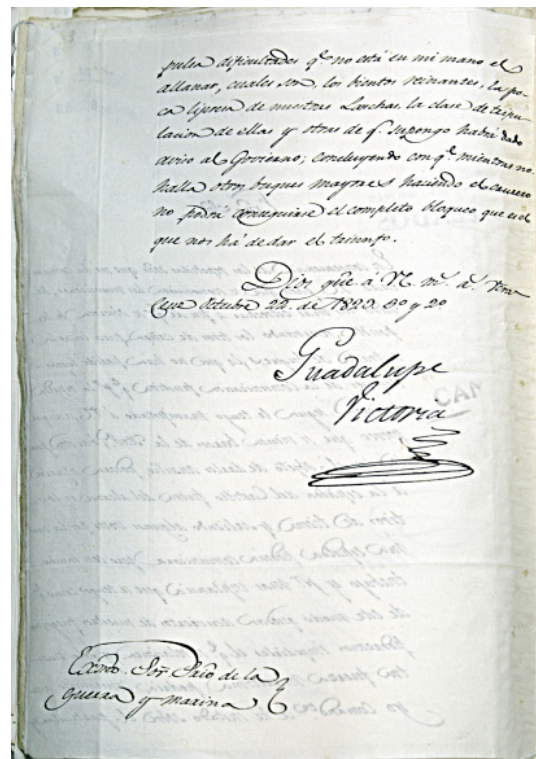 pulsa dificultades q.e no está en mi mano el
allanar, cuales son, los bientos reinantes, la po-
ca lijereza de nuestras Lanchas, la clase de tripu-
lacion de ellas y otras de q.e supongo habrá dado
aviso al Govierno; concluyendo con q.e mientras no
halla otros buques mayores haciendo el crucero
no podrá conseguirse el completo bloqueo que es el
que nos há de dar el triunfo.
Dios gũe á V. m.s a.s Vera
Cruz Octubre 22. de 1823. 3º y 2º
Guadalupe
Victoria
Exmo. Sor. Srio de la
guerra y marina